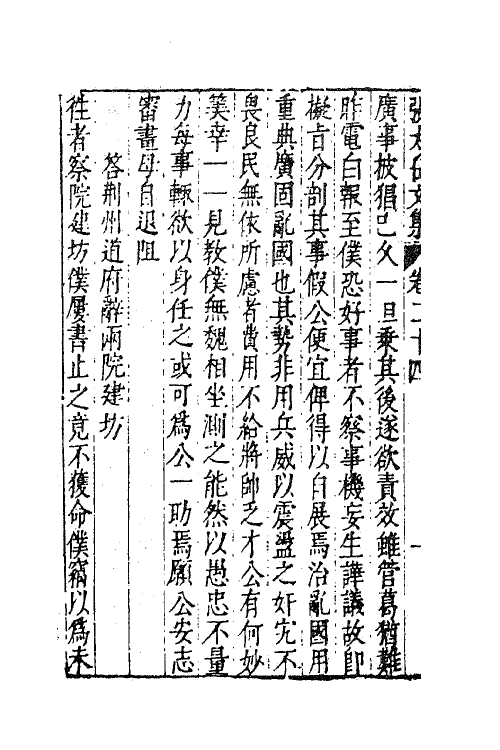 張太岳文集 卷二十四 一
廣事披猖已久一旦乗其後遂欲責效雖管葛猶難
昨電白報至僕恐好事者不察事機妄生譁議故即
擬旨分剖其事假公便宜俾得以自展焉治亂國用
重典廣固亂國也其勢非用兵威以震盪之奸宄不
畏良民無依所慮者費用不給將帥乏才公有何妙
筭幸一一見教僕無魏相坐測之能然以愚忠不量
力每事輒欲以身任之或可爲公一助焉願公安志
審畫毋自沮阻
答荆州道府辭兩院建坊
徃者察院建坊僕屢書止之竟不獲命僕竊以爲未